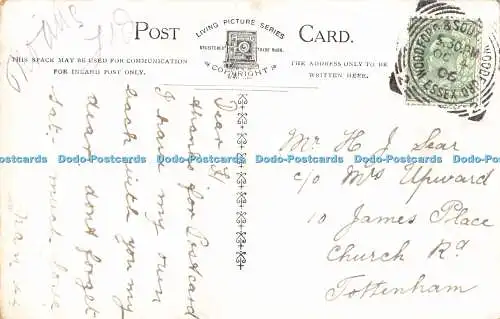 POST
CARD.
LIVING PICTURE SERIES
REGISTERED
TRADE MARK.
COPYRIGHT
THIS SPACE MAY BE USED FOR COMMUNICATION
FOR INLAND POST ONLY.
THE ADDRESS ONLY TO BE
WRITTEN HERE.
WOODFORD & SOUTH WOODFORD
5.30PM
OC
06
ESSEX
Dear
thanks for Postcard
I send my own
back with you my
dear dont forget
Sat; much love
Mr H J Sear
c/o Mrs Upward
10 James Place
Church Rd
Tottenham
Dodo-Postcards Dodo-Postcards Dodo-Postcards Dodo-Postcards Dodo-Postcards